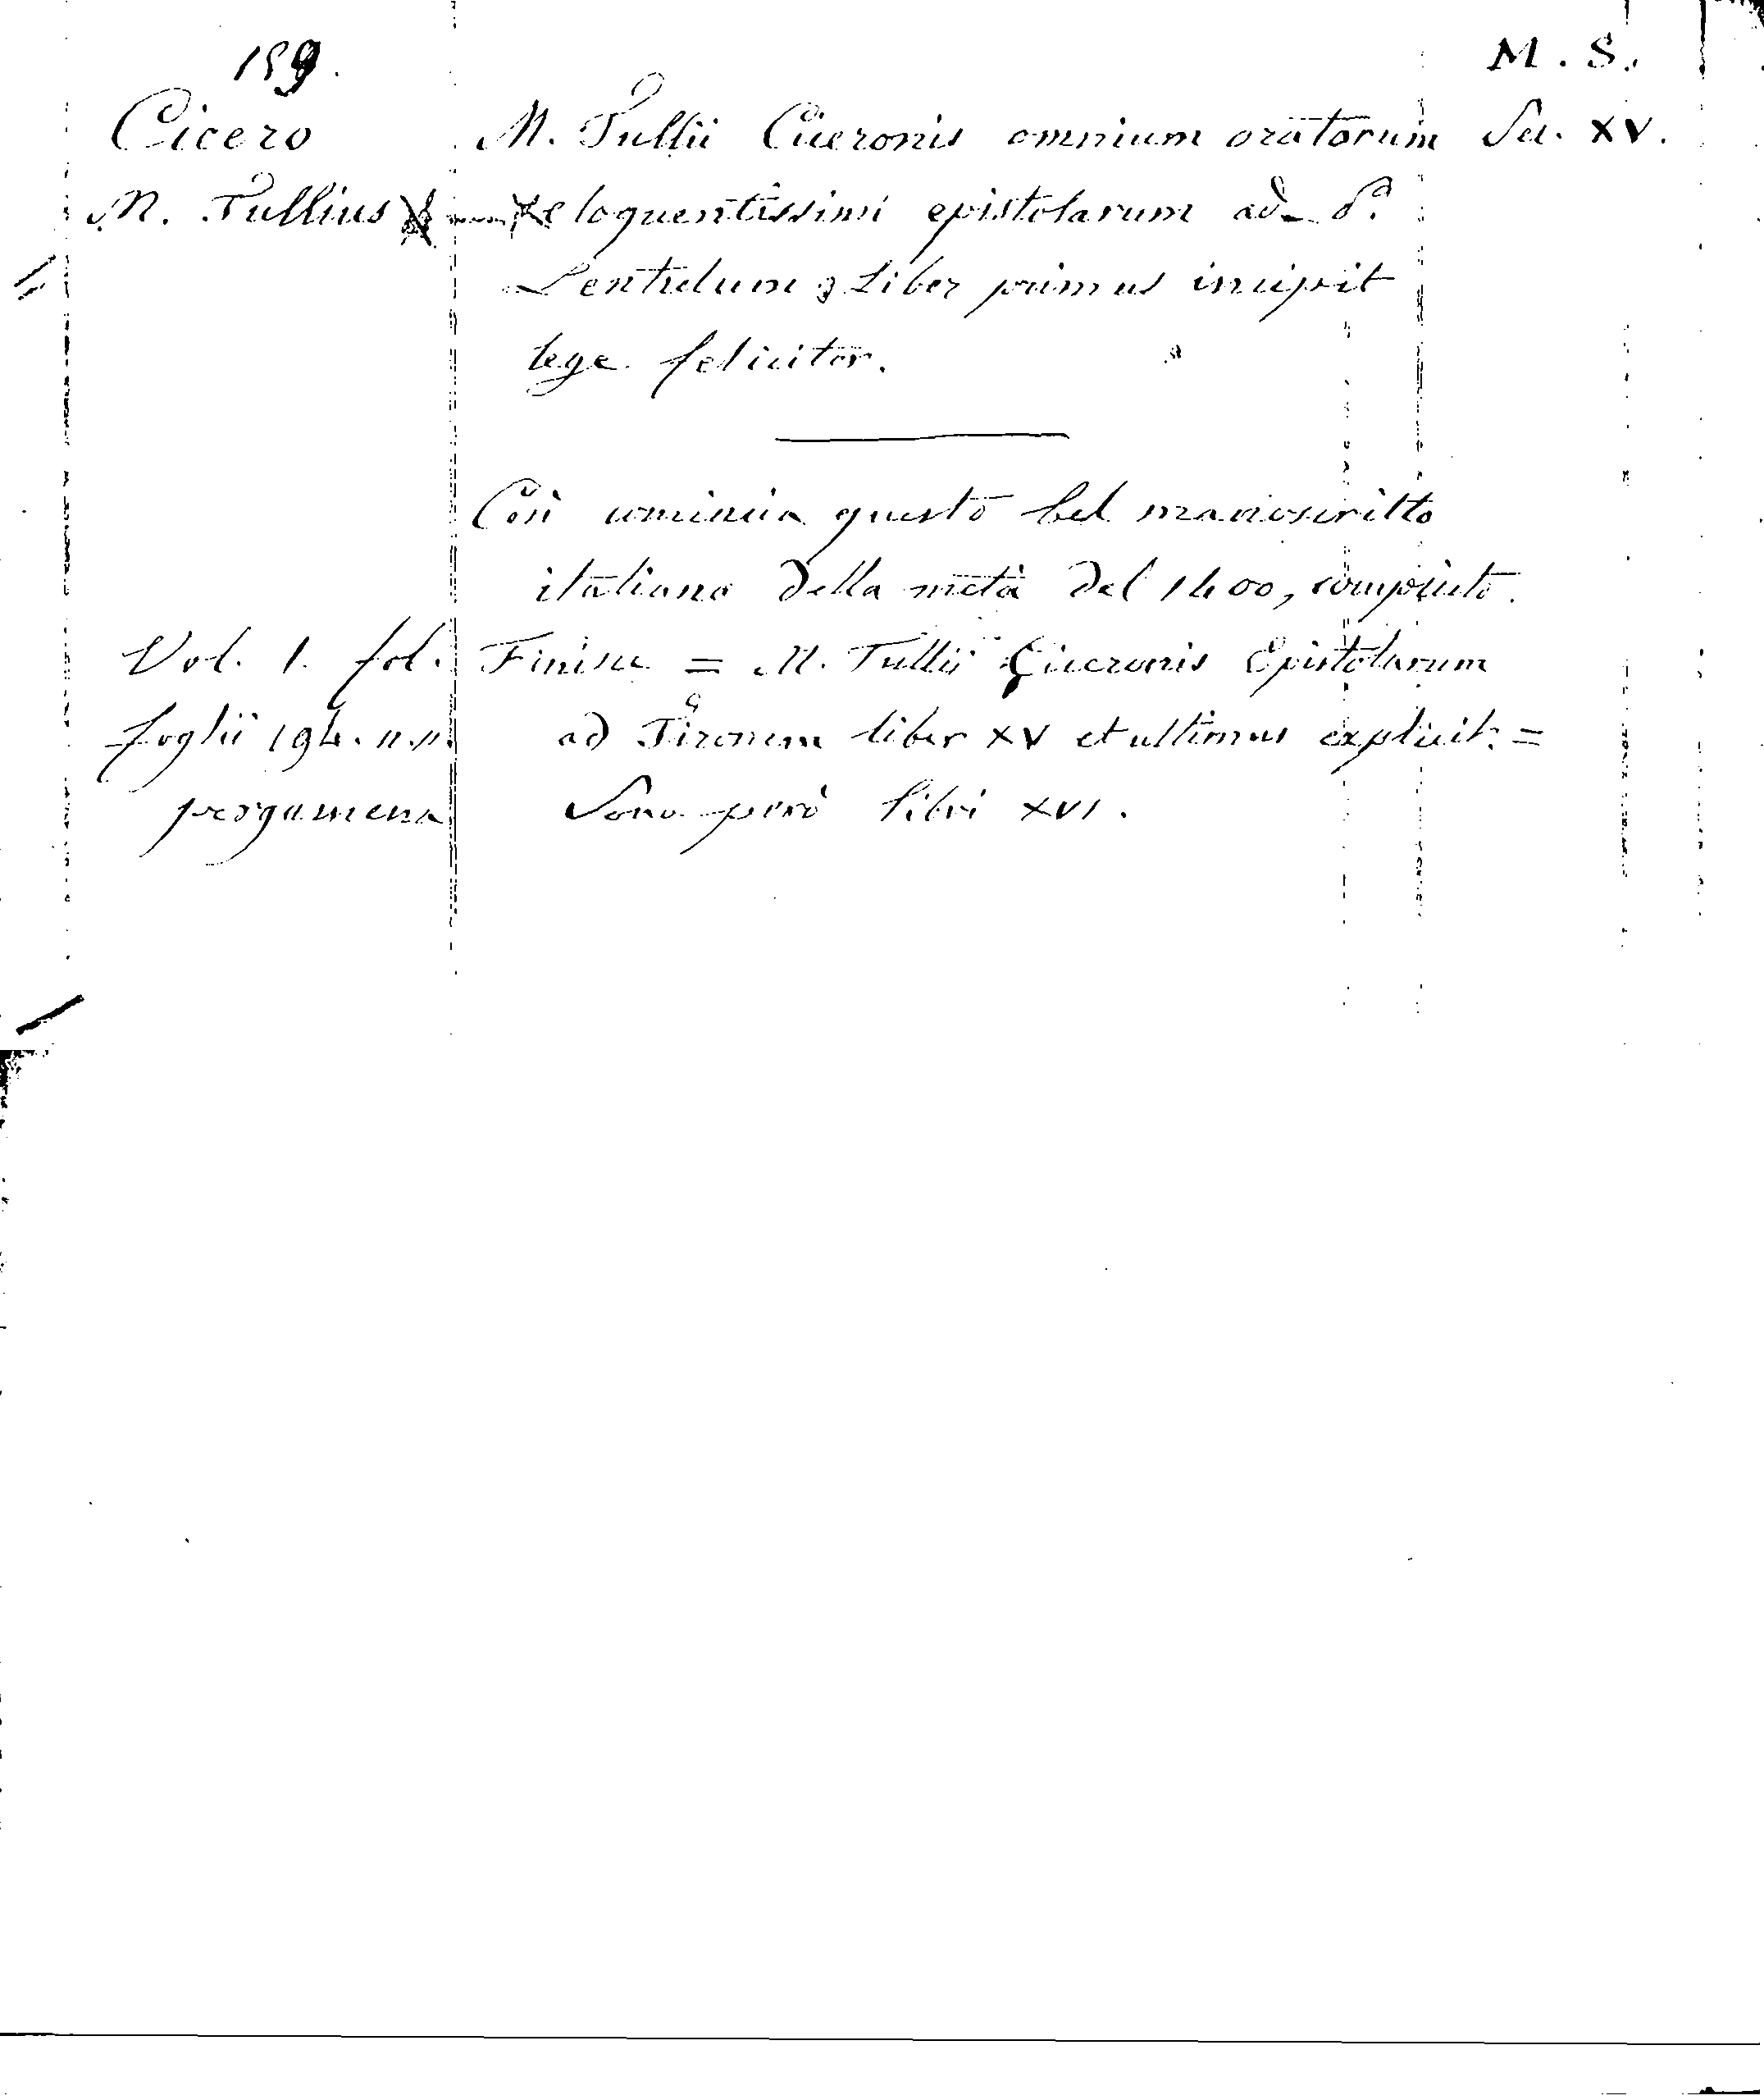 159.
M. S.
Cicero M. Tullii Ciceronis omnium oratorum Sec. XV.
M. Tullius eloquentissimi epistolarum ad P.
Lentulum Liber primus incipit
lege feliciter.
Così comincia questo bel manoscritto
italiano della metà del 1400, compiuto.
Vol. 1. fol. Finisce = M. Tullii Ciceronis Epistolarum
foglii 194. n.n. ad Tironem liber XV et ultimus explicit. =
pergamena Sono però libri XVI.